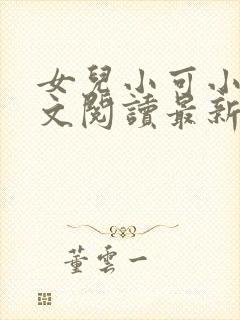 女兒小可小
文閱讀最新
董雲一